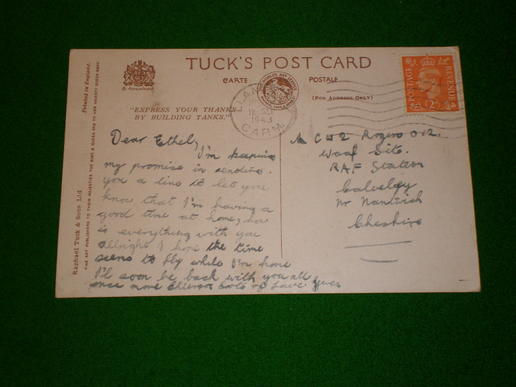 TUCK'S POST CARD
CARTE POSTALE
(FOR ADDRESS ONLY)
"EXPRESS YOUR THANKS
BY BUILDING TANKS."
Printed in England.
Raphael Tuck & Sons Ltd
1943
CARM
POSTAGE
REVENUE
Dear Ethel,
I'm keeping
my promise in sending
you a line to let you
know that I'm having a
good time at home, how
is everything with you
allright I hope the time
seems to fly while I'm home
I'll soon be back with you all
once more cheerio lots of love
Rogers
Waaf Site
RAF Station
Calveley
Nr Nantwich
Cheshire